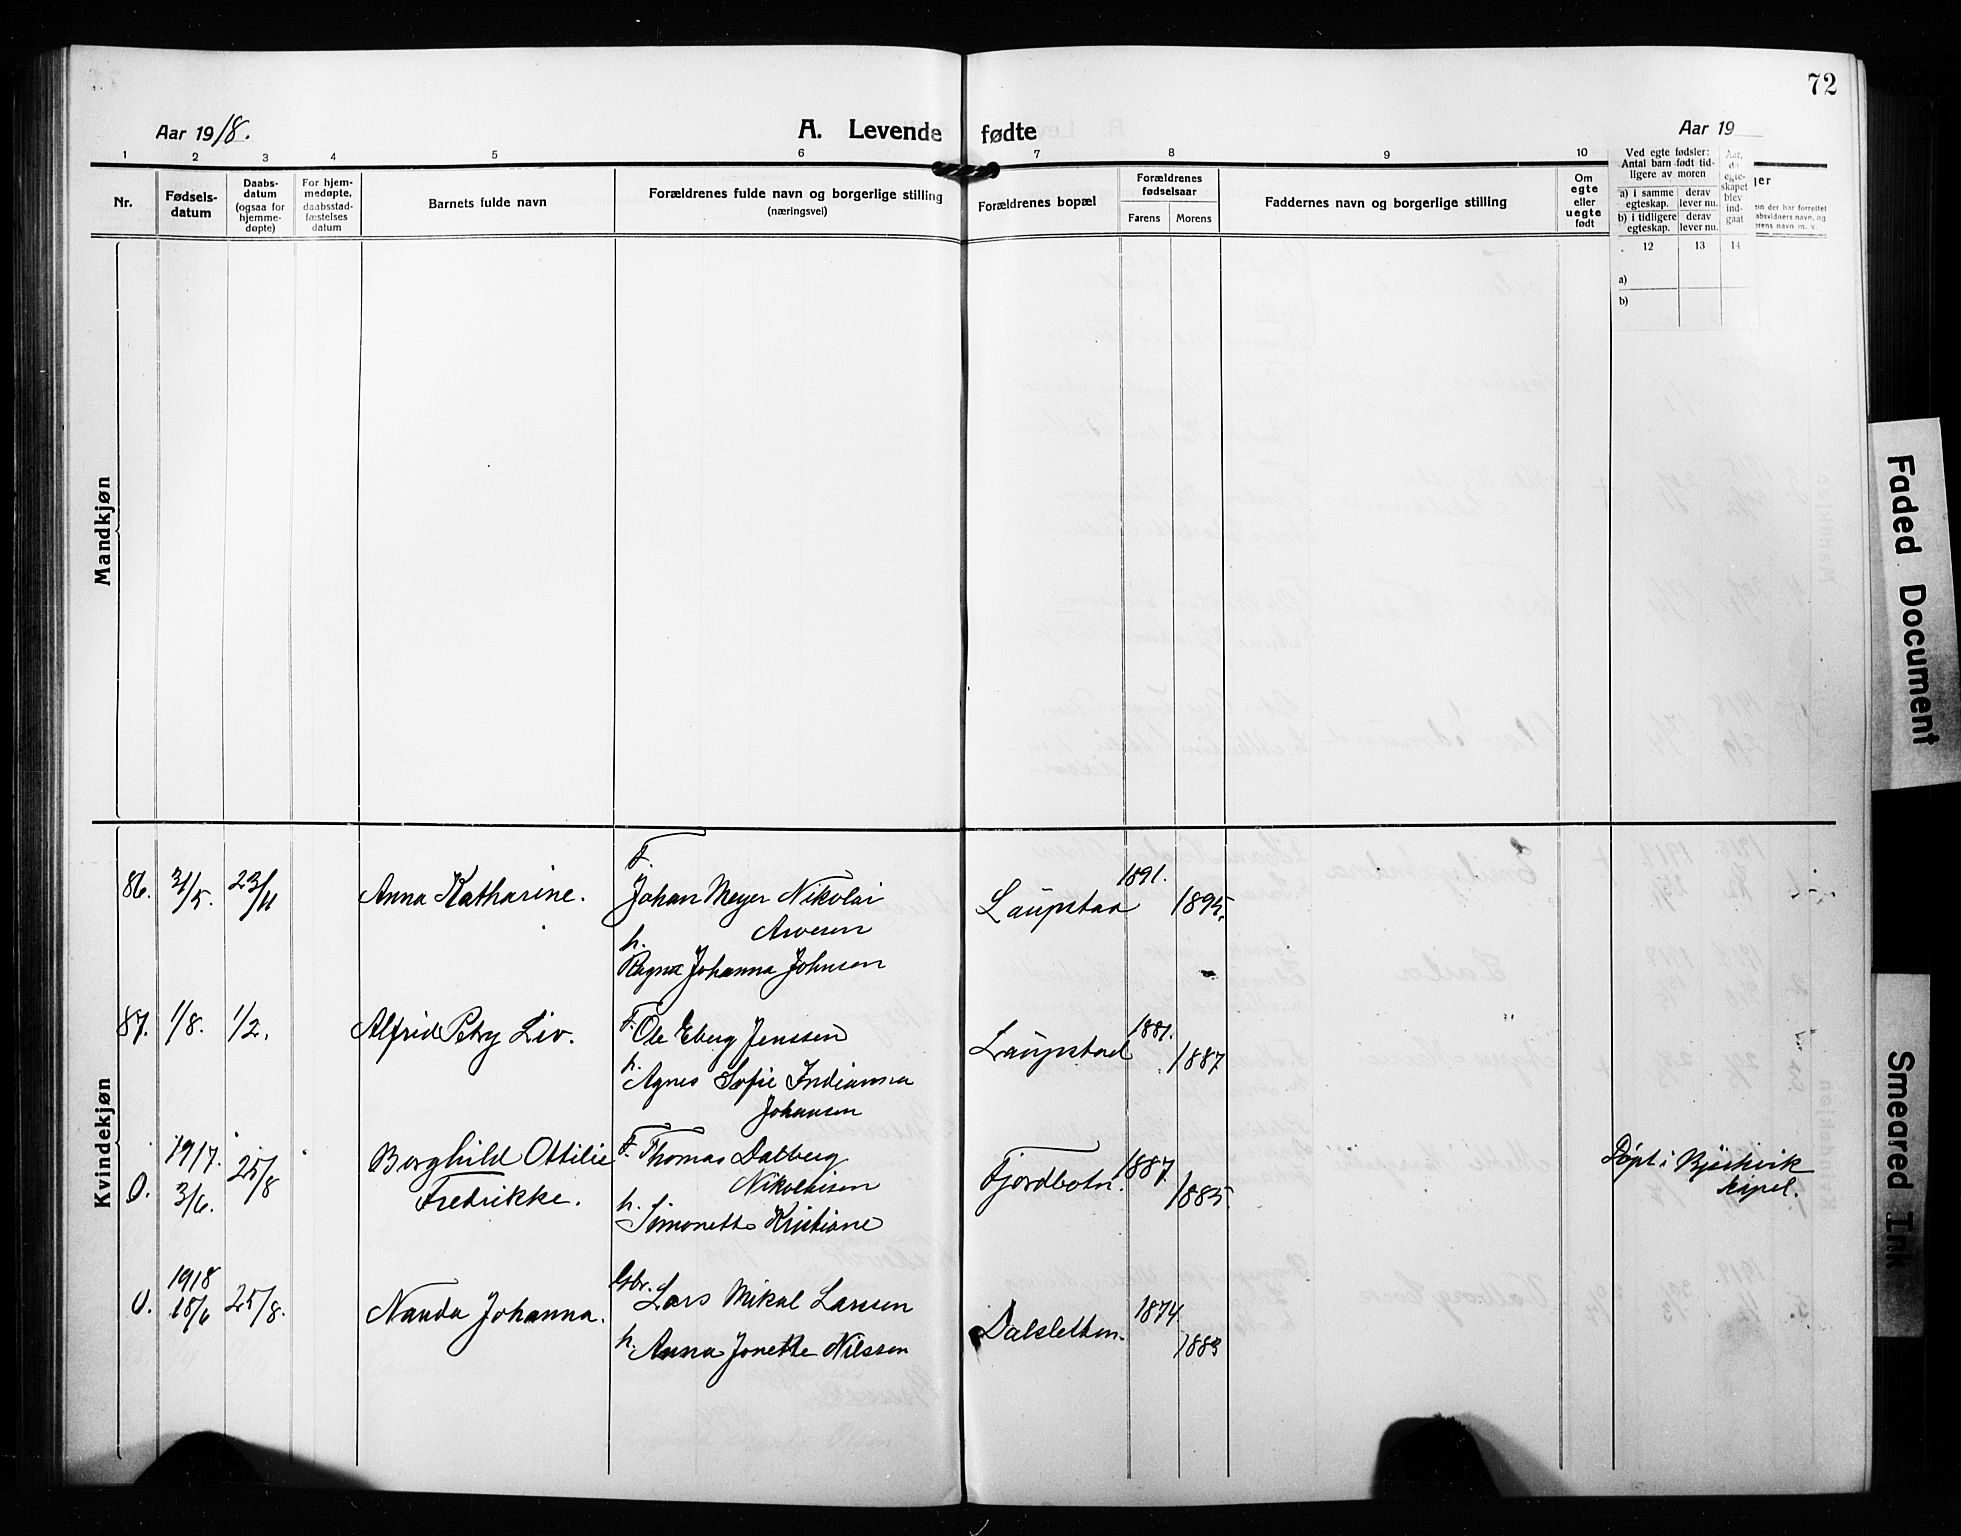 72
Aar 1918.
A. Levende fødte
Aar 19
1 2 3 4 5 6 7 8 9 10
Nr.
Fødsels-
datum
Daabs-
datum
(ogsaa for
hjemme-
døpte)
For hjem-
medøpte,
daabsstad-
fæstelses
datum
Barnets fulde navn
Forældrenes fulde navn og borgerlige stilling
(næringsvei)
Forældrenes bopæl
Forældrenes
fødselsaar
Farens Morens
Faddernes navn og borgerlige stilling
Om
egte
eller
uegte
født
Ved egte fødsler:
Antal barn født tid-
ligere av moren
a) i samme
egteskap.
derav
lever nu.
b) i tidligere
egteskap.
derav
lever nu.
Aar,
egte-
skapet
blev
ind-
gaat
12 13 14
a)
b)
ger
em der har forrettet
absvidners navn, og
erens navn m. v.
Mandkjøn
Kvindekjøn
86. 31/5. 23/11
Anna Katharine.
F.
Johan Meyer Nikolai
Arvesen
h.
Ragna Johanna Johnsen
Laupstad
1891.
1895.
87. 1/8. 1/2.
Alfrid Petry Liv.
F. Ole Eberg Jenssen
h. Agnes Sofie Indianna
Johansen
Laupstad
1881.
1887
0.
1917.
3/6.
25/8
Borghild Ottilie
Fredrikke.
F. Thomas Dalberg
Nikolaisen
h. Simonette Kristiane
Fjordbotn.
1887
1885.
Døpt i
kapel.
0.
1918
18/6
25/8.
Nanda Johanna.
Gbr. Lars Mikal Larsen
h. Anna Jonette Nilssen
Dalsletten.
1874
1883
Faded Document
Smeared Ink